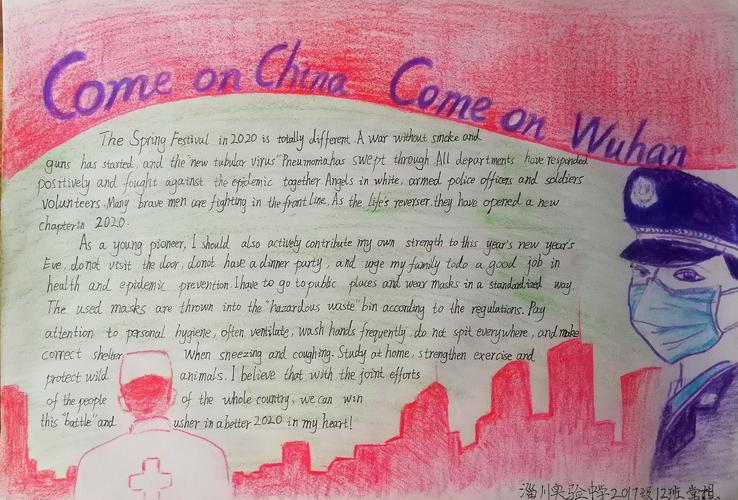 Come on China Come on Wuhan
The Spring Festival in 2020 is totally different. A war without smoke and
guns has started, and the "new tubular virus" Pneumonia has swept through. All departments have responded
positively and fought against the epidemic together. Angels in white, armed police officers and soldiers
volunteers. Many brave men are fighting in the front line. As the life's reverser, they have opened a new
chapter in 2020.
As a young pioneer, I should also actively contribute my own strength to this year's new year's
Eve, do not visit the door, do not have a dinner party, and urge my family to do a good job in
health and epidemic prevention. I have to go to public places and wear masks in a standardized way.
The used masks are thrown into the "hazardous waste" bin according to the regulations. Pay
attention to personal hygiene, often ventilate, wash hands frequently, do not spit everywhere, and make
correct shelter When sneezing and coughing. Study at home, strengthen exercise and
protect wild animals. I believe that with the joint efforts
of the people of the whole country, we can win
this "battle" and usher in a better 2020 in my heart!
淄川实验中学2017级12班